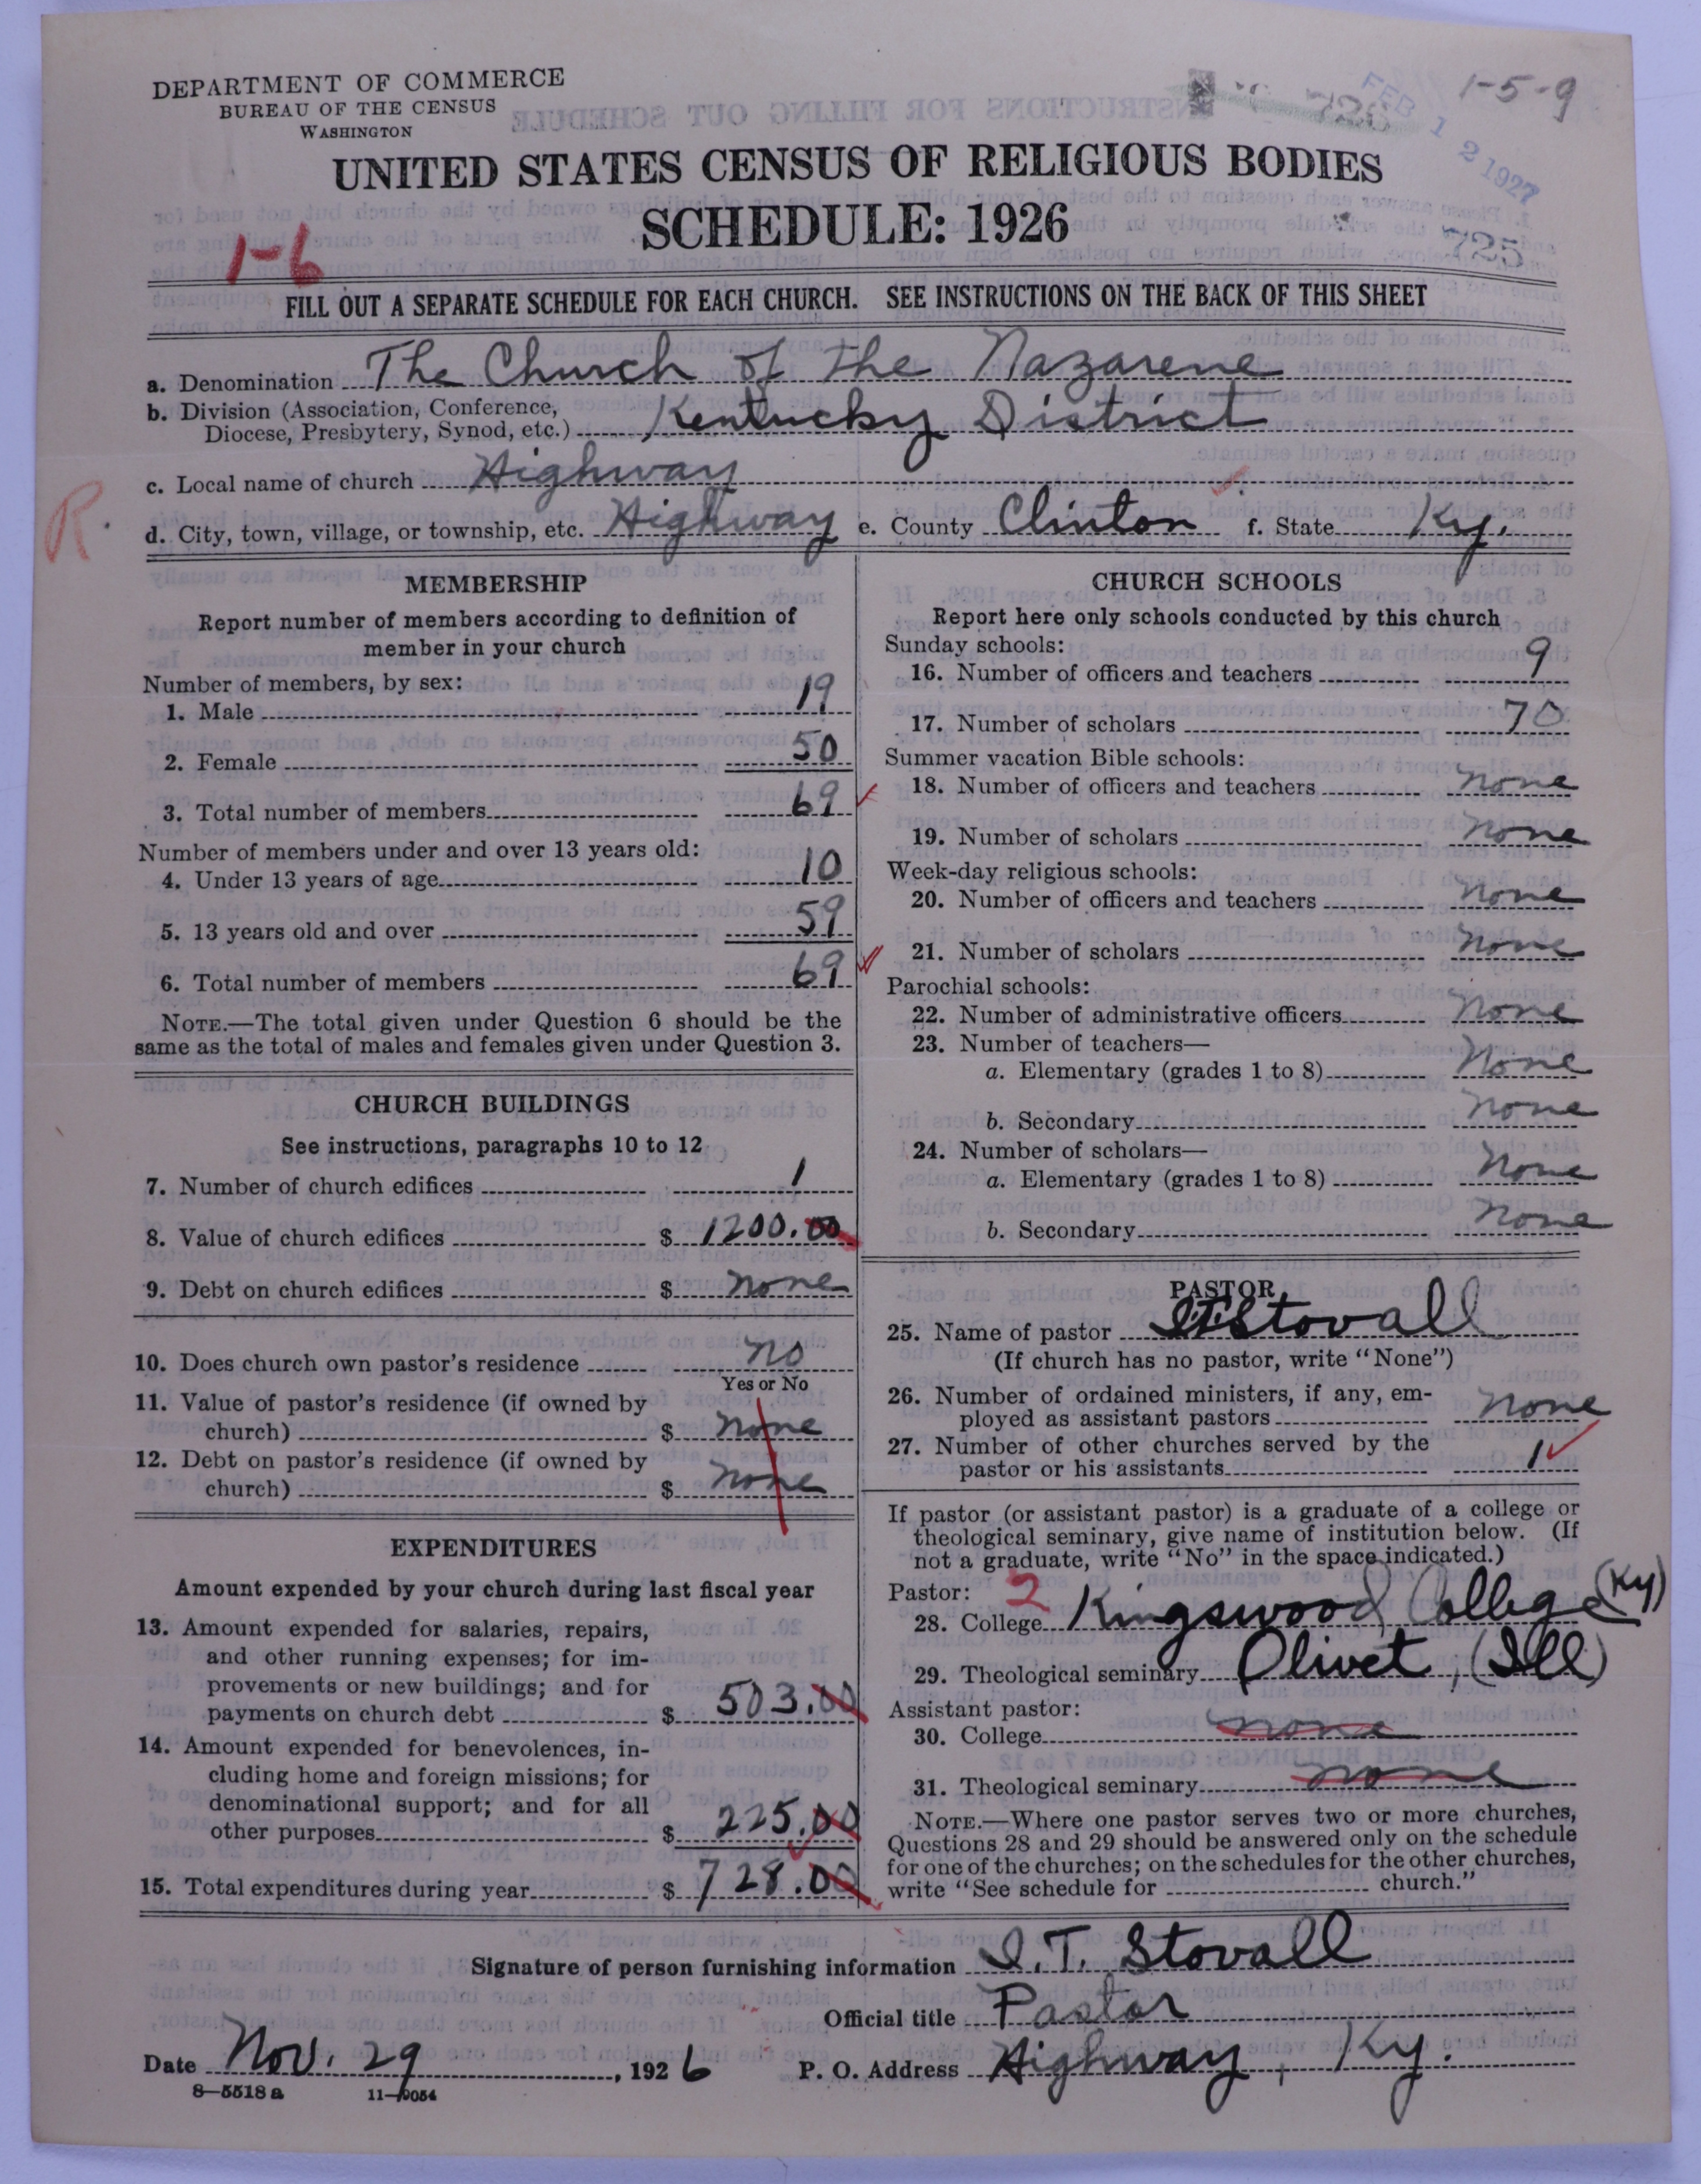 DEPARTMENT OF COMMERCE
BUREAU OF THE CENSUS
WASHINGTON
1-5-9
FEB 12 1927
725
UNITED STATES CENSUS OF RELIGIOUS BODIES
SCHEDULE: 1926
1-6
FILL OUT A SEPARATE SCHEDULE FOR EACH CHURCH. SEE INSTRUCTIONS ON THE BACK OF THIS SHEET
a. Denomination The Church of the Nazarene
b. Division (Association, Conference,
Diocese, Presbytery, Synod, etc.) Kentucky District
c. Local name of church Highway
R.
d. City, town, village, or township, etc. Highway e. County Clinton f. State Ky.
MEMBERSHIP
Report number of members according to definition of
member in your church
Number of members, by sex:
1. Male 19
2. Female 50
3. Total number of members 69
Number of members under and over 13 years old:
4. Under 13 years of age 10
5. 13 years old and over 59
6. Total number of members 69
NOTE.—The total given under Question 6 should be the
same as the total of males and females given under Question 3.
CHURCH BUILDINGS
See instructions, paragraphs 10 to 12
7. Number of church edifices 1
8. Value of church edifices $ 1200.00
9. Debt on church edifices $ none
10. Does church own pastor's residence no
Yes or No
11. Value of pastor's residence (if owned by
church) $ none
12. Debt on pastor's residence (if owned by
church) $ none
EXPENDITURES
Amount expended by your church during last fiscal year
13. Amount expended for salaries, repairs,
and other running expenses; for im-
provements or new buildings; and for
payments on church debt $ 503.00
14. Amount expended for benevolences, in-
cluding home and foreign missions; for
denominational support; and for all
other purposes $ 225.00
15. Total expenditures during year $ 728.00
CHURCH SCHOOLS
Report here only schools conducted by this church
Sunday schools:
16. Number of officers and teachers 9
17. Number of scholars 70
Summer vacation Bible schools:
18. Number of officers and teachers none
19. Number of scholars none
Week-day religious schools:
20. Number of officers and teachers none
21. Number of scholars none
Parochial schools:
22. Number of administrative officers none
23. Number of teachers—
a. Elementary (grades 1 to 8) none
b. Secondary none
24. Number of scholars—
a. Elementary (grades 1 to 8) none
b. Secondary none
PASTOR
25. Name of pastor I.T. Stovall
(If church has no pastor, write "None")
26. Number of ordained ministers, if any, em-
ployed as assistant pastors none
27. Number of other churches served by the
pastor or his assistants 1
If pastor (or assistant pastor) is a graduate of a college or
theological seminary, give name of institution below. (If
not a graduate, write "No" in the space indicated.)
Pastor: 2
28. College Kingswood College (Ky)
29. Theological seminary Olivet, (Ill)
Assistant pastor:
30. College none
31. Theological seminary none
NOTE.—Where one pastor serves two or more churches,
Questions 28 and 29 should be answered only on the schedule
for one of the churches; on the schedules for the other churches,
write "See schedule for church."
Signature of person furnishing information I. T. Stovall
Official title Pastor
Date Nov. 29, 1926 P. O. Address Highway, Ky.
8—5518 a 11—9054